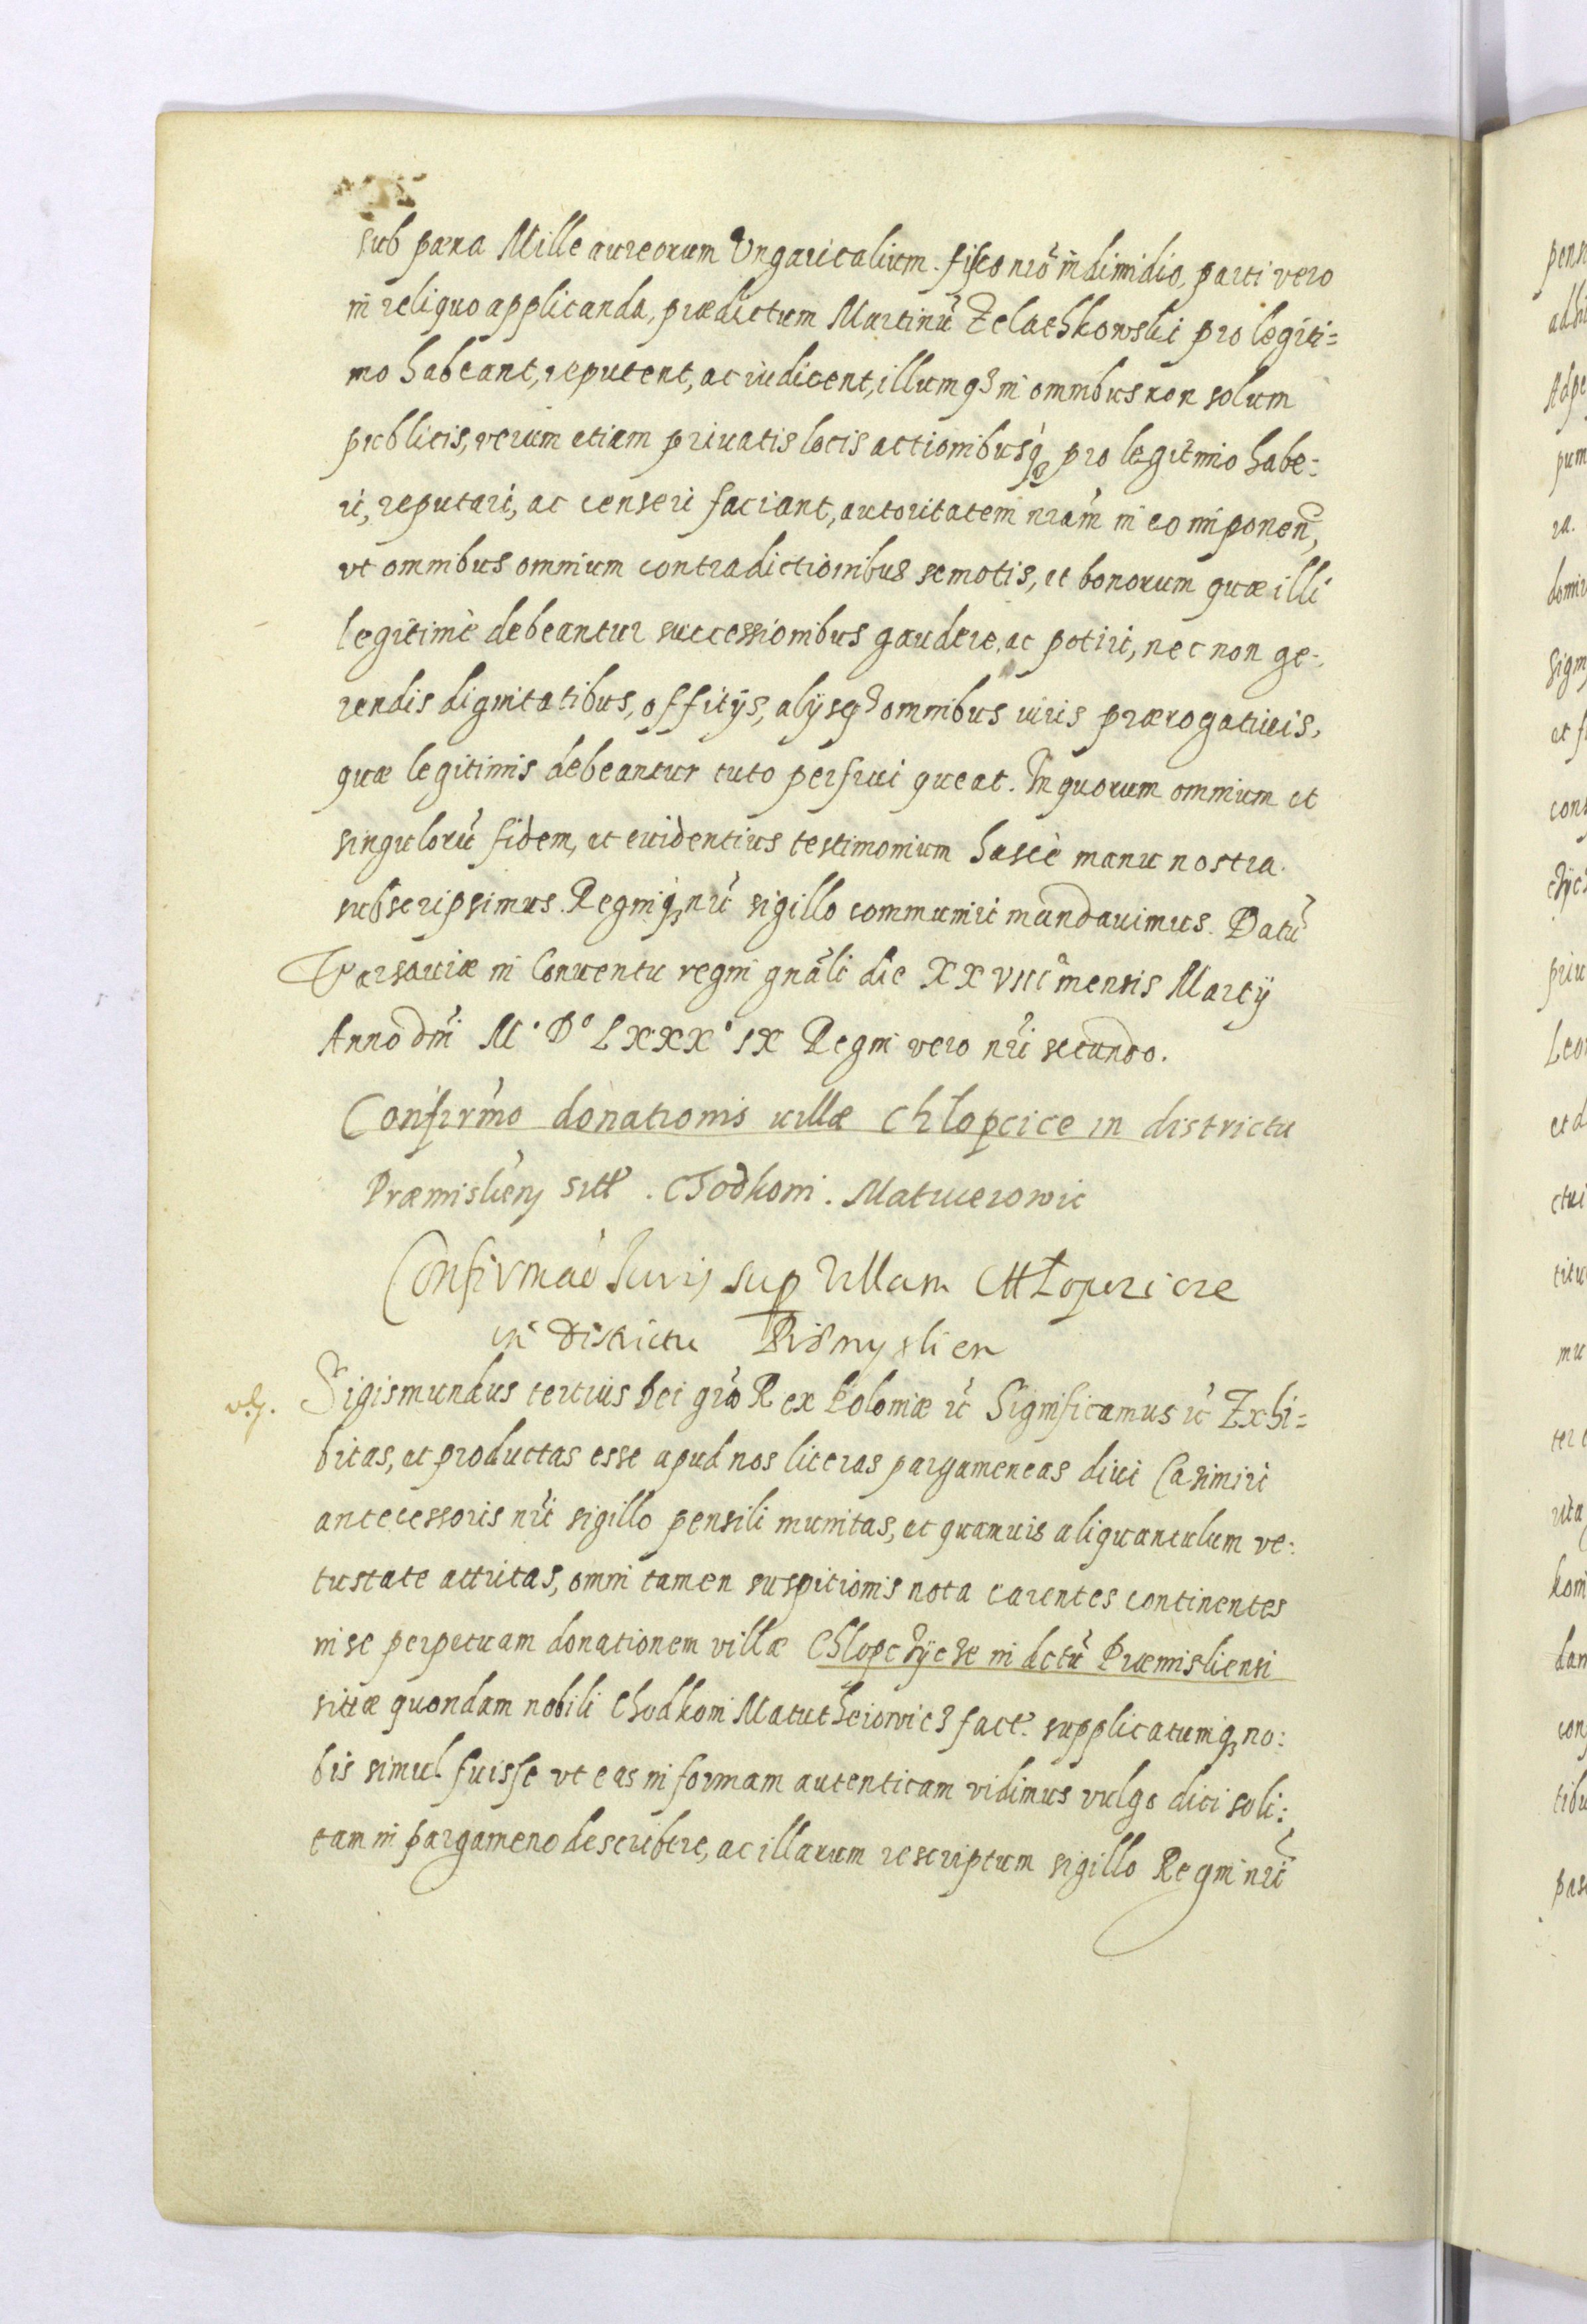 sub pæna Mille aureorum Ungaricalium. fisco nrõ in dimidio, parti vero
in reliquo applicanda, prædictum Martinũ Zelachkowski pro legiti=
mo habeant, reputent, ac iudicent, illumq3 in omnibus non solum
publicis, verum etiam priuatis locis actionibusq3 pro legitimo habe=
ri, reputari, ac censeri faciant, autoritatem nram̃ in eo imponen̄,
vt omnibus omnium contradictionibus semotis, et bonorum quæ illi
legitimè debeantur successionibus gaudere, ac potiri, nec non ge=
rendis dignitatibus, offitijs, alijsq3 omnibus iuris prærogatiuis,
quæ legitimis debeantur tuto perfrui queat. In quorum omnium et
singulorũ fidem, et euidentius testimonium hasce manu nostra
subscripsimus. Regniq3 nrĩ sigillo communiri mandauimus. Datũ
Varsauiæ in Conuentu regni gnãli die XXVIII mensis Martij
Anno dñi M° D° LXXX° IX Regni vero nrĩ secundo.
Confirm̃o donationis uillæ Chlopcice in districtu
Præmislien̄ sitæ. Chodkoni. Matuierowic
Confirmaõ Iuris sup Villam CHŁopczicze
in Districtu Przemyslien
Sigismundus tertius Dei grã Rex Poloniæ ec̃ Significamus ec̃ Exhi=
bitas, et productas esse apud nos literas pargameneas diui Casimiri
antecessoris nrĩ sigillo pensili munitas, et quamuis aliquantulum ve=
tustate attritas, omni tamen suspitionis nota carentes continentes
in se perpetuam donationem villæ Chlopczycze in dctũ Præmisliensi
sitæ quondam nobili Chodkoni Matutheiowicz fact. supplicatumq3 no=
bis simul fuisse vt eas in formam autenticam vidimus vulgo dici soli=
tam in pargameno describere, ac illarum rescriptum sigillo Regni nrĩ